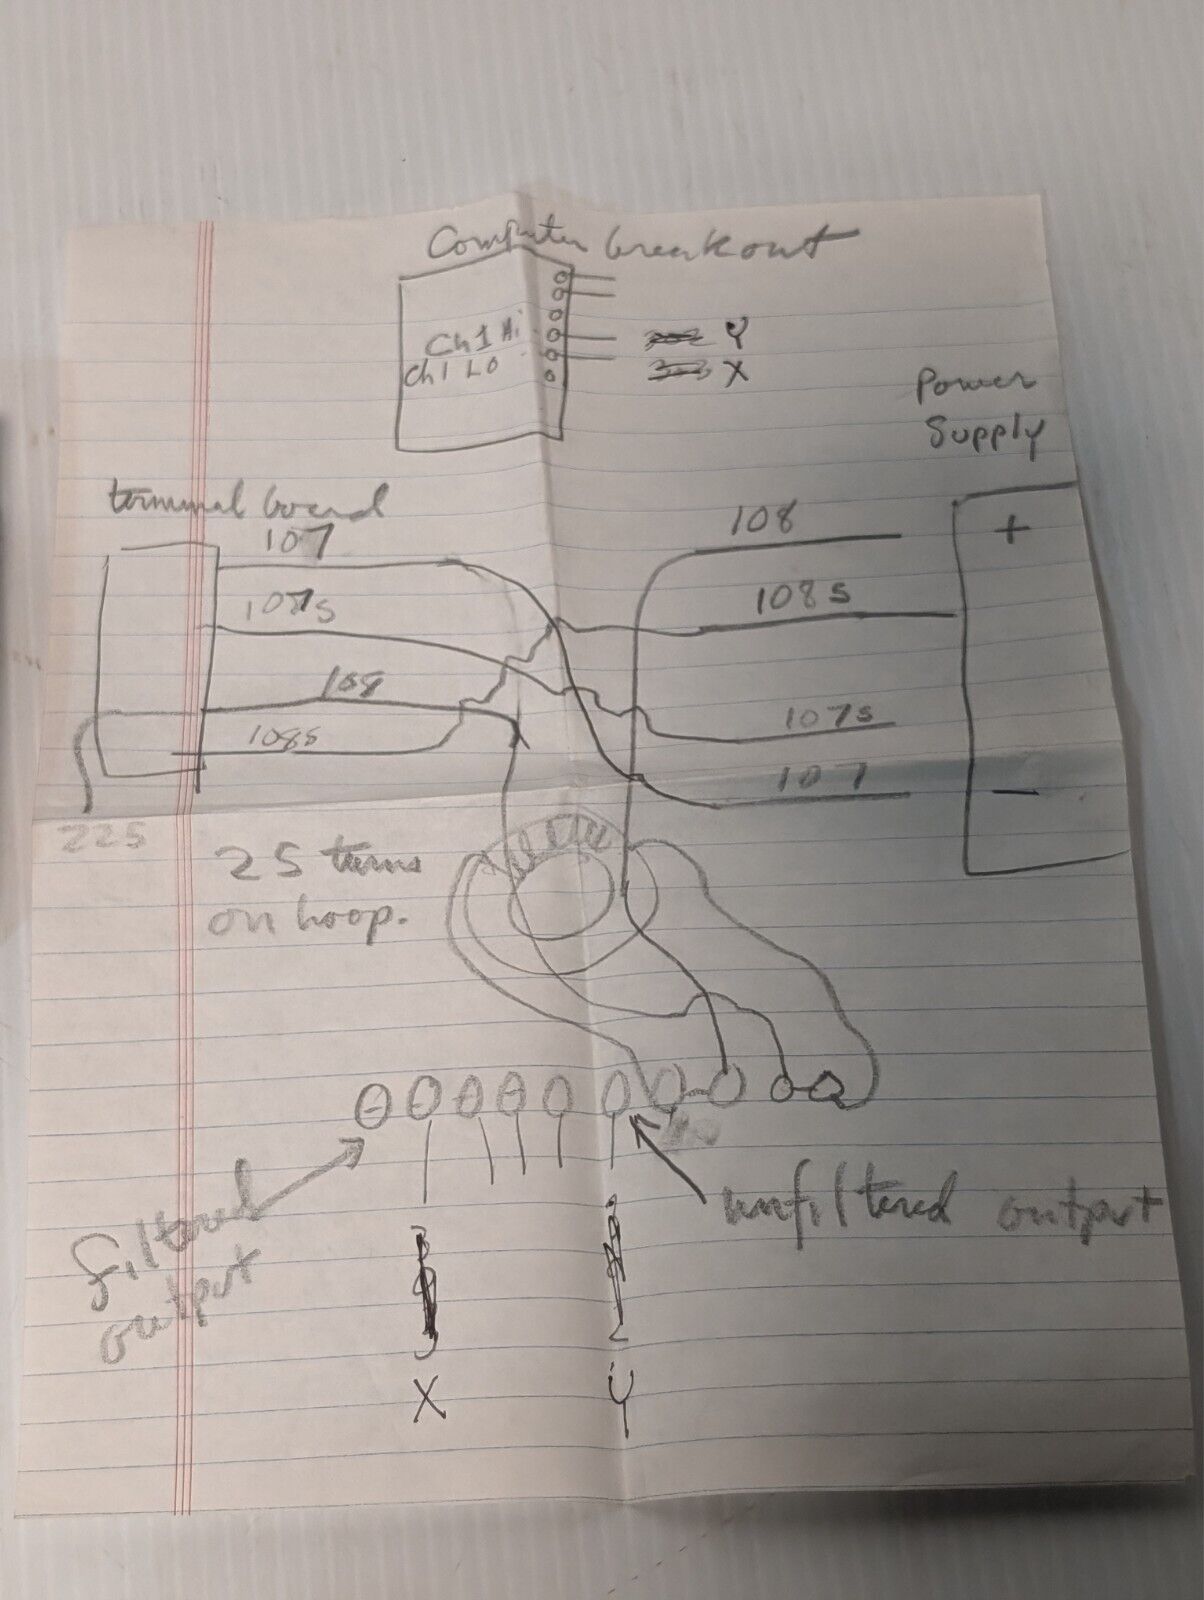 Computer breakout
Ch1 Hi
Y
Ch1 LO
X
Power
Supply
terminal board
107
108
+
107s
108s
108
107s
108s
107
-
225
25 turns
on hoop.
filtered
output
unfiltered output
X
Y